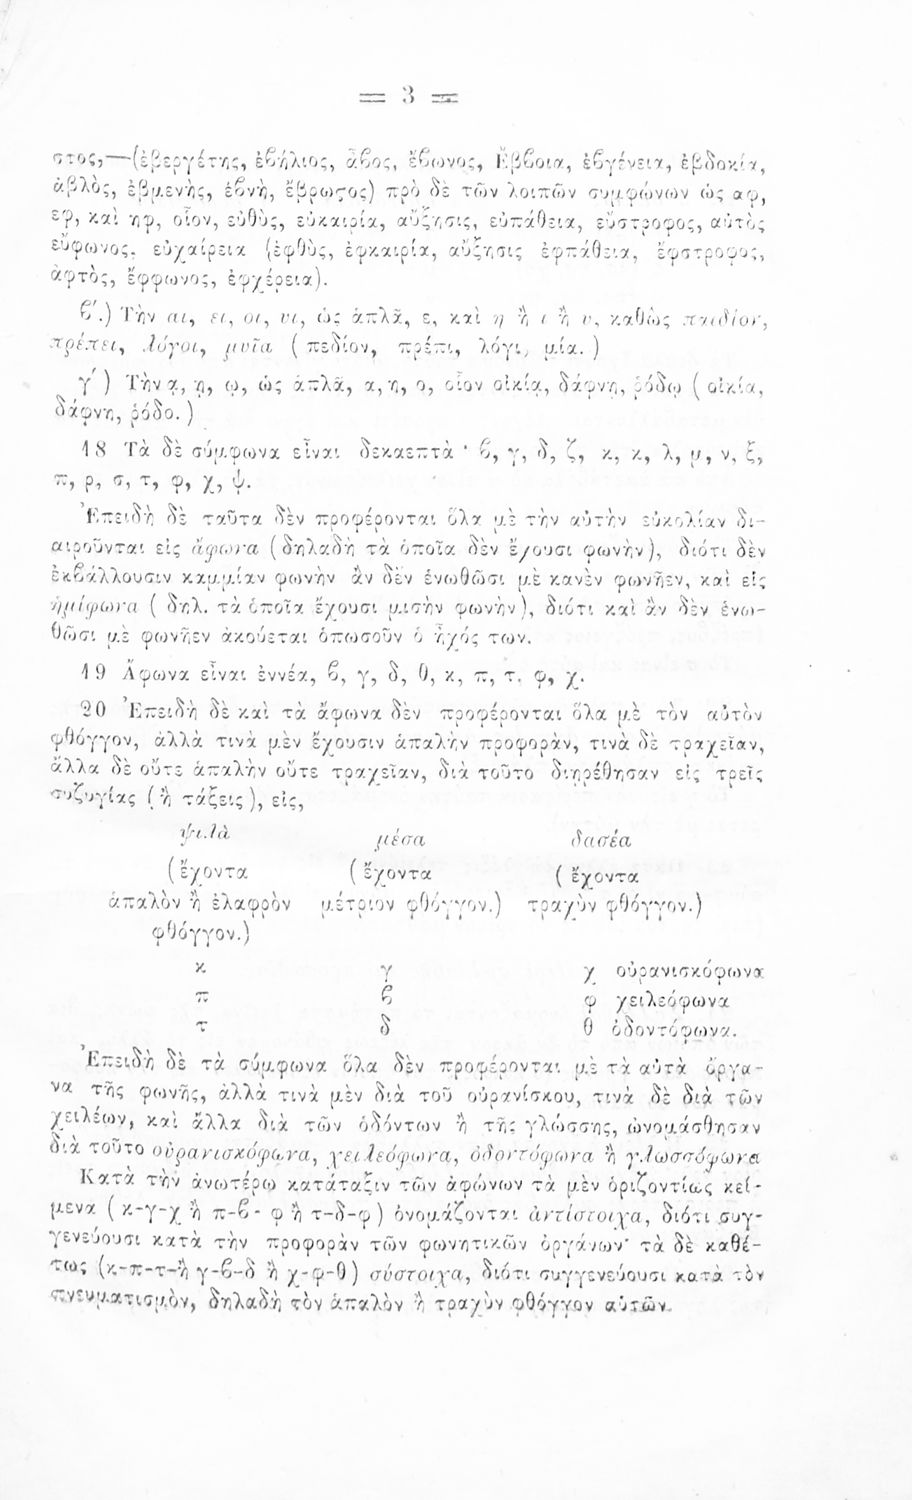 = 3 =
στος,—(ἐβεργέτης, ἐβήλιος, ἄβος, ἔβωνος, Ἔββοια, ἐβγένεια, ἐβδοκία,
ἀβλὸς, ἐβμενὴς, ἐβνὴ, ἔβρωςος) πρὸ δὲ τῶν λοιπῶν συμφώνων ὡς αφ,
εφ, καὶ ηφ, οἷον, εὐθὺς, εὐκαιρία, αὔξησις, εὐπάθεια, εὔστροφος, αὐτὸς
εὔφωνος, εὐχαίρεια (ἐφθὺς, ἐφκαιρία, αὔξησις ἐφπάθεια, ἔφστροφος,
ἀφτὸς, ἔφφωνος, ἐφχέρεια).
ϐ΄.) Τὴν αι, ει, οι, υι, ὡς ἁπλᾶ, ε, καὶ η ἢ ι ἢ υ, καθὼς παιδίον,
πρέπει, λόγοι, μυῖα ( πεδίον, πρέπι, λόγι, μία. )
γ΄) Τὴν ᾳ, ῃ, ῳ, ὡς ἁπλᾶ, α, η, ο, οἷον οἰκίᾳ, δάφνῃ, ῥόδῳ ( οἰκία,
δάφνη, ῥόδο. )
18 Τὰ δὲ σύμφωνα εἶναι δεκαεπτὰ · ϐ, γ, δ, ζ, κ, κ, λ, μ, ν, ξ,
π, ρ, σ, τ, φ, χ, ψ.
Ἐπειδὴ δὲ ταῦτα δὲν προφέρονται ὅλα μὲ τὴν αὐτὴν εὐκολίαν δι-
αιροῦνται εἰς ἄφωνα (δηλαδὴ τὰ ὁποῖα δὲν ἔχουσι φωνὴν), διότι δὲν
ἐκβάλλουσιν καμμίαν φωνὴν ἂν δὲν ἑνωθῶσι μὲ κανὲν φωνῆεν, καὶ εἰς
ἡμίφωνα ( δηλ. τὰ ὁποῖα ἔχουσι μισὴν φωνὴν), διότι καὶ ἂν δὲν ἑνω-
θῶσι μὲ φωνῆεν ἀκούεται ὁπωσοῦν ὁ ἦχός των.
19 Ἄφωνα εἶναι ἐννέα, ϐ, γ, δ, θ, κ, π, τ, φ, χ.
20 Ἐπειδὴ δὲ καὶ τὰ ἄφωνα δὲν προφέρονται ὅλα μὲ τὸν αὐτὸν
φθόγγον, ἀλλὰ τινὰ μὲν ἔχουσιν ἁπαλὴν προφορὰν, τινὰ δὲ τραχεῖαν,
ἄλλα δὲ οὔτε ἁπαλὴν οὔτε τραχεῖαν, διὰ τοῦτο διῃρέθησαν εἰς τρεῖς
συζυγίας (ἢ τάξεις), εἰς,
ψιλὰ μέσα δασέα
(ἔχοντα (ἔχοντα (ἔχοντα
ἁπαλὸν ἢ ἐλαφρὸν μέτριον φθόγγον.) τραχὺν φθόγγον.)
φθόγγον.)
κ γ χ οὐρανισκόφωνα
π ϐ φ χειλεόφωνα
τ δ θ ὀδοντόφωνα.
Ἐπειδὴ δὲ τὰ σύμφωνα ὅλα δὲν προφέρονται μὲ τὰ αὐτὰ ὄργα-
να τῆς φωνῆς, ἀλλὰ τινὰ μὲν διὰ τοῦ οὐρανίσκου, τινὰ δὲ διὰ τῶν
χειλέων, καὶ ἄλλα διὰ τῶν ὀδόντων ἢ τῆς γλώσσης, ὠνομάσθησαν
διὰ τοῦτο οὐρανισκόφωνα, χειλεόφωνα, ὀδοντόφωνα ἢ γλωσσόφωνα
Κατὰ τὴν ἀνωτέρω κατάταξιν τῶν ἀφώνων τὰ μὲν ὁριζοντίως κεί-
μενα ( κ-γ-χ ἢ π-ϐ- φ ἢ τ-δ-φ ) ὀνομάζονται ἀντίστοιχα, διότι συγ-
γενεύουσι κατὰ τὴν προφορὰν τῶν φωνητικῶν ὀργάνων· τὰ δὲ καθέ-
τως (κ-π-τ-ἢ γ-ϐ-δ ἢ χ-φ-θ) σύστοιχα, διότι συγγενεύουσι κατὰ τὸν
πνευματισμὸν, δηλαδὴ τὸν ἁπαλὸν ἢ τραχὺν φθόγγον αὐτῶν.